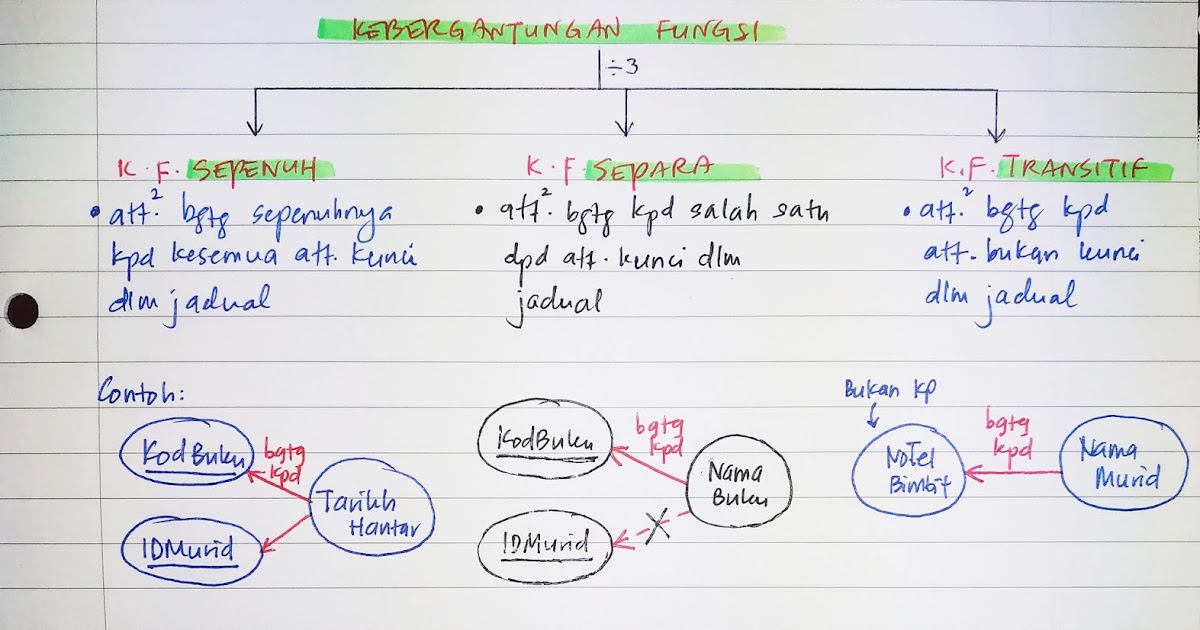 KEBERGANTUNGAN FUNGSI
÷3
K.F. SEPENUH
• att.² bgtg sepenuhnya
kpd kesemua att. kunci
dlm jadual
K.F. SEPARA
• att.² bgtg kpd salah satu
dpd att. kunci dlm
jadual
K.F. TRANSITIF
• att.² bgtg kpd
att. bukan kunci
dlm jadual
Contoh:
KodBuku
IDMurid
bgtg
kpd
Tarikh
Hantar
KodBuku
IDMurid
bgtg
kpd
Nama
Buku
Bukan KP
NoTel
Bimbit
bgtg
kpd
Nama
Murid